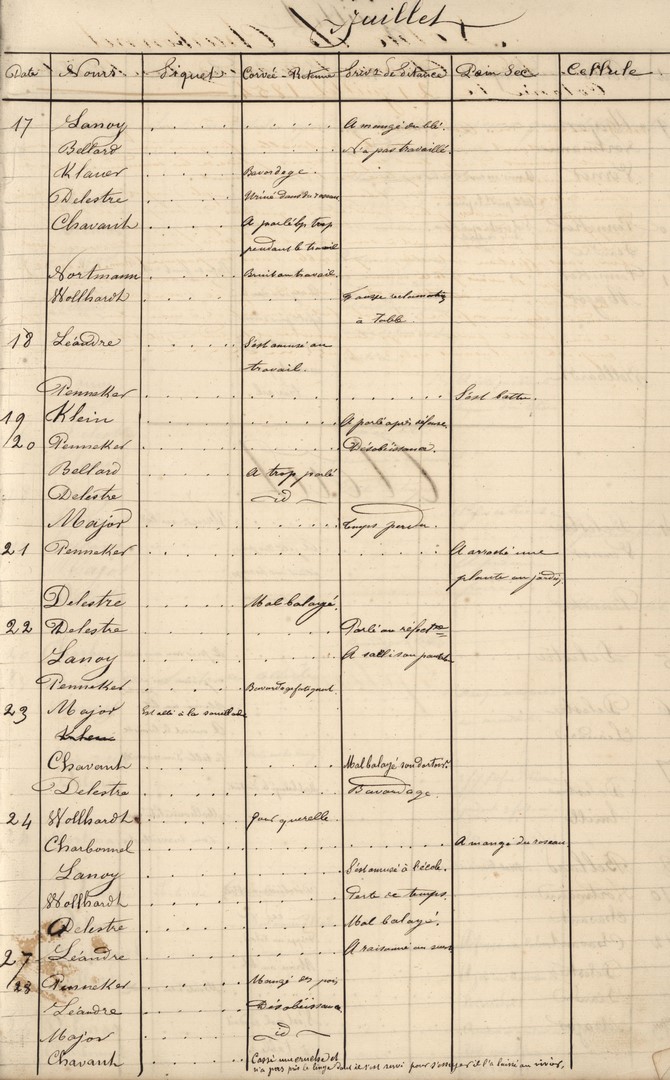 Juillet
Date Noms Piquet Corvée-Retenue Priv.on de distance Pain Sec Cellule
17 Lanoy A mangé du blé.
Bellard N'a pas travaillé.
Klauer Bavardage.
Delestre Uriné dans du
Chavanh A parlé trop
pendant le travail
Nortmann Bruit au travail.
Wollhardt
à Table.
18 Léandre S'est amusé au
travail.
Penneker S'est battu.
19 Klein A parlé après défense
20 Penneker Désobéissance.
Bellard A trop parlé
Delestre id
Major Temps perdu.
21 Penneker A arraché une
plante au jardin,
Delestre Mal balayé.
22 Delestre Parlé au réfectre
Lanoy A sali son pantal
Penneker Bavardage fatigant.
23 Major Est allé à la
Klein
Chavanh Mal balayé son dortoir.
Delestre Bavardage.
24 Wollhardt Pour querelle.
Charbonnel A mangé du roseau
Lanoy S'est amusé à l'école.
Wollhardt Perte de temps.
Delestre Mal balayé.
27 Léandre A raisonné au
28 Penneker Mangé des pois
Léandre Désobéissance
Major id
Chavanh Cassé une cruche et
n'a pas pris le linge dont il s'est servi pour s'essuyer il l'a laissé au vivier.